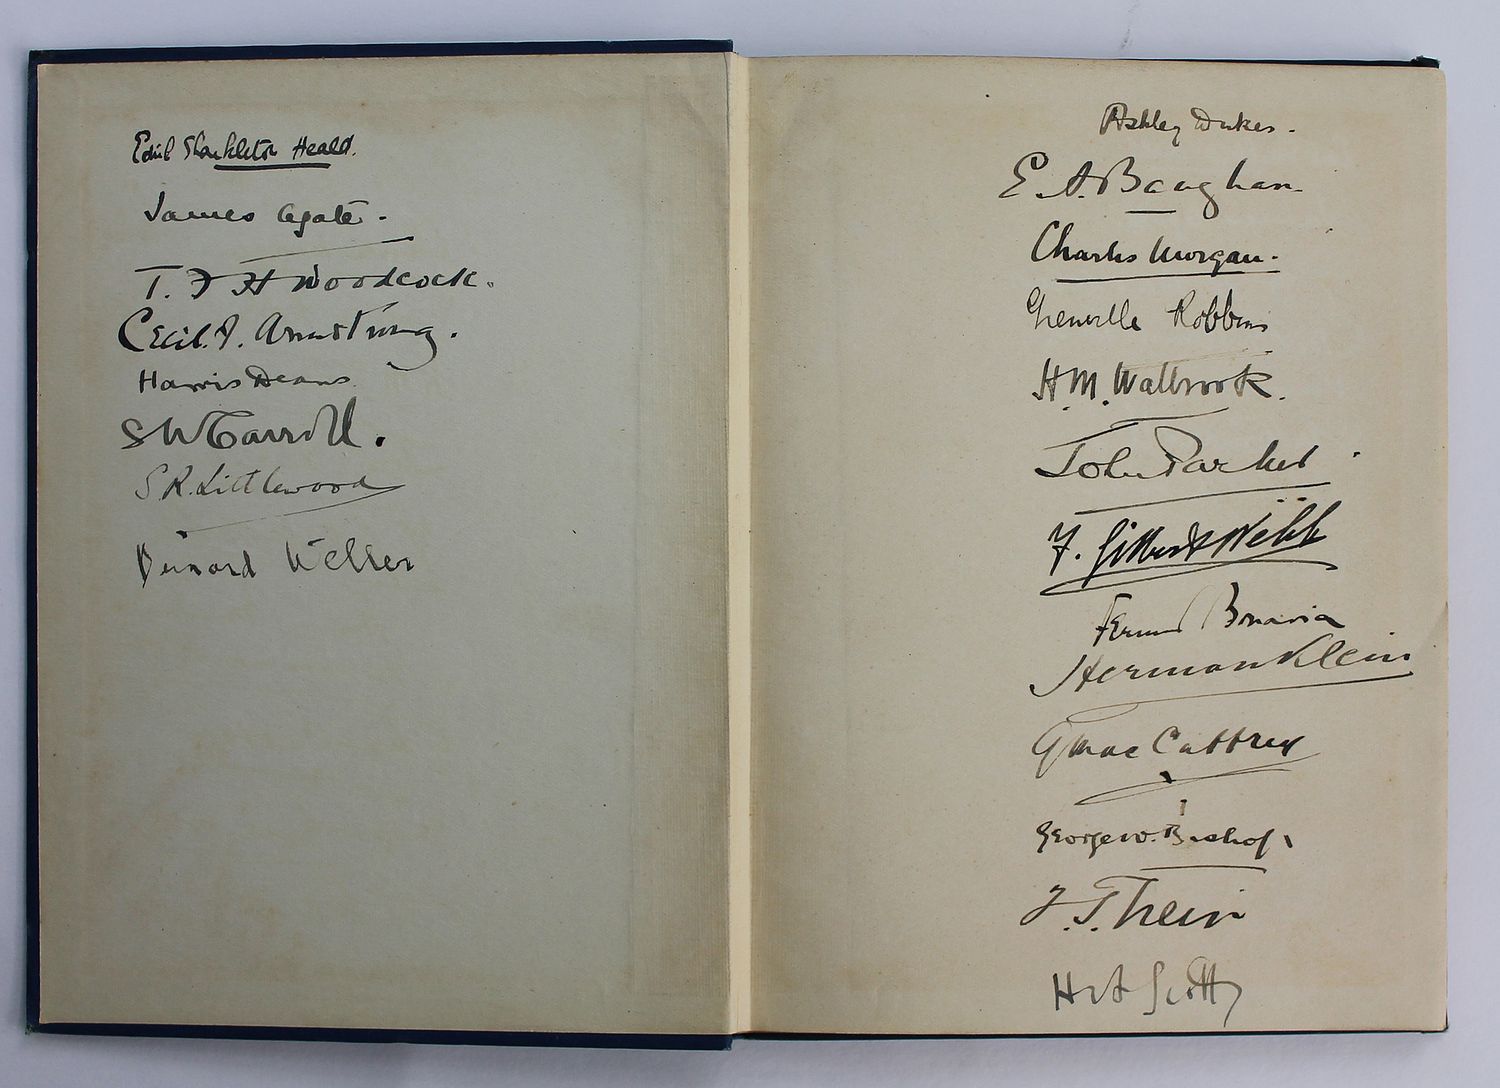 Edith Shackleton Heald.
James Agate.
T. F H Woodcock.
Cecil. F. Armstrong.
Harris Deans
S W Carroll.
S R. Littlewood
Bernard Weller
Ashley Dukes.
E. A. Baughan
Charles Morgan.
Grenville Robbins
H. M. Walbrook.
John Parker
F. Gilbert Webb
Ferruccio Bonavia
Herman Klein
George W. Bishop.
Scott